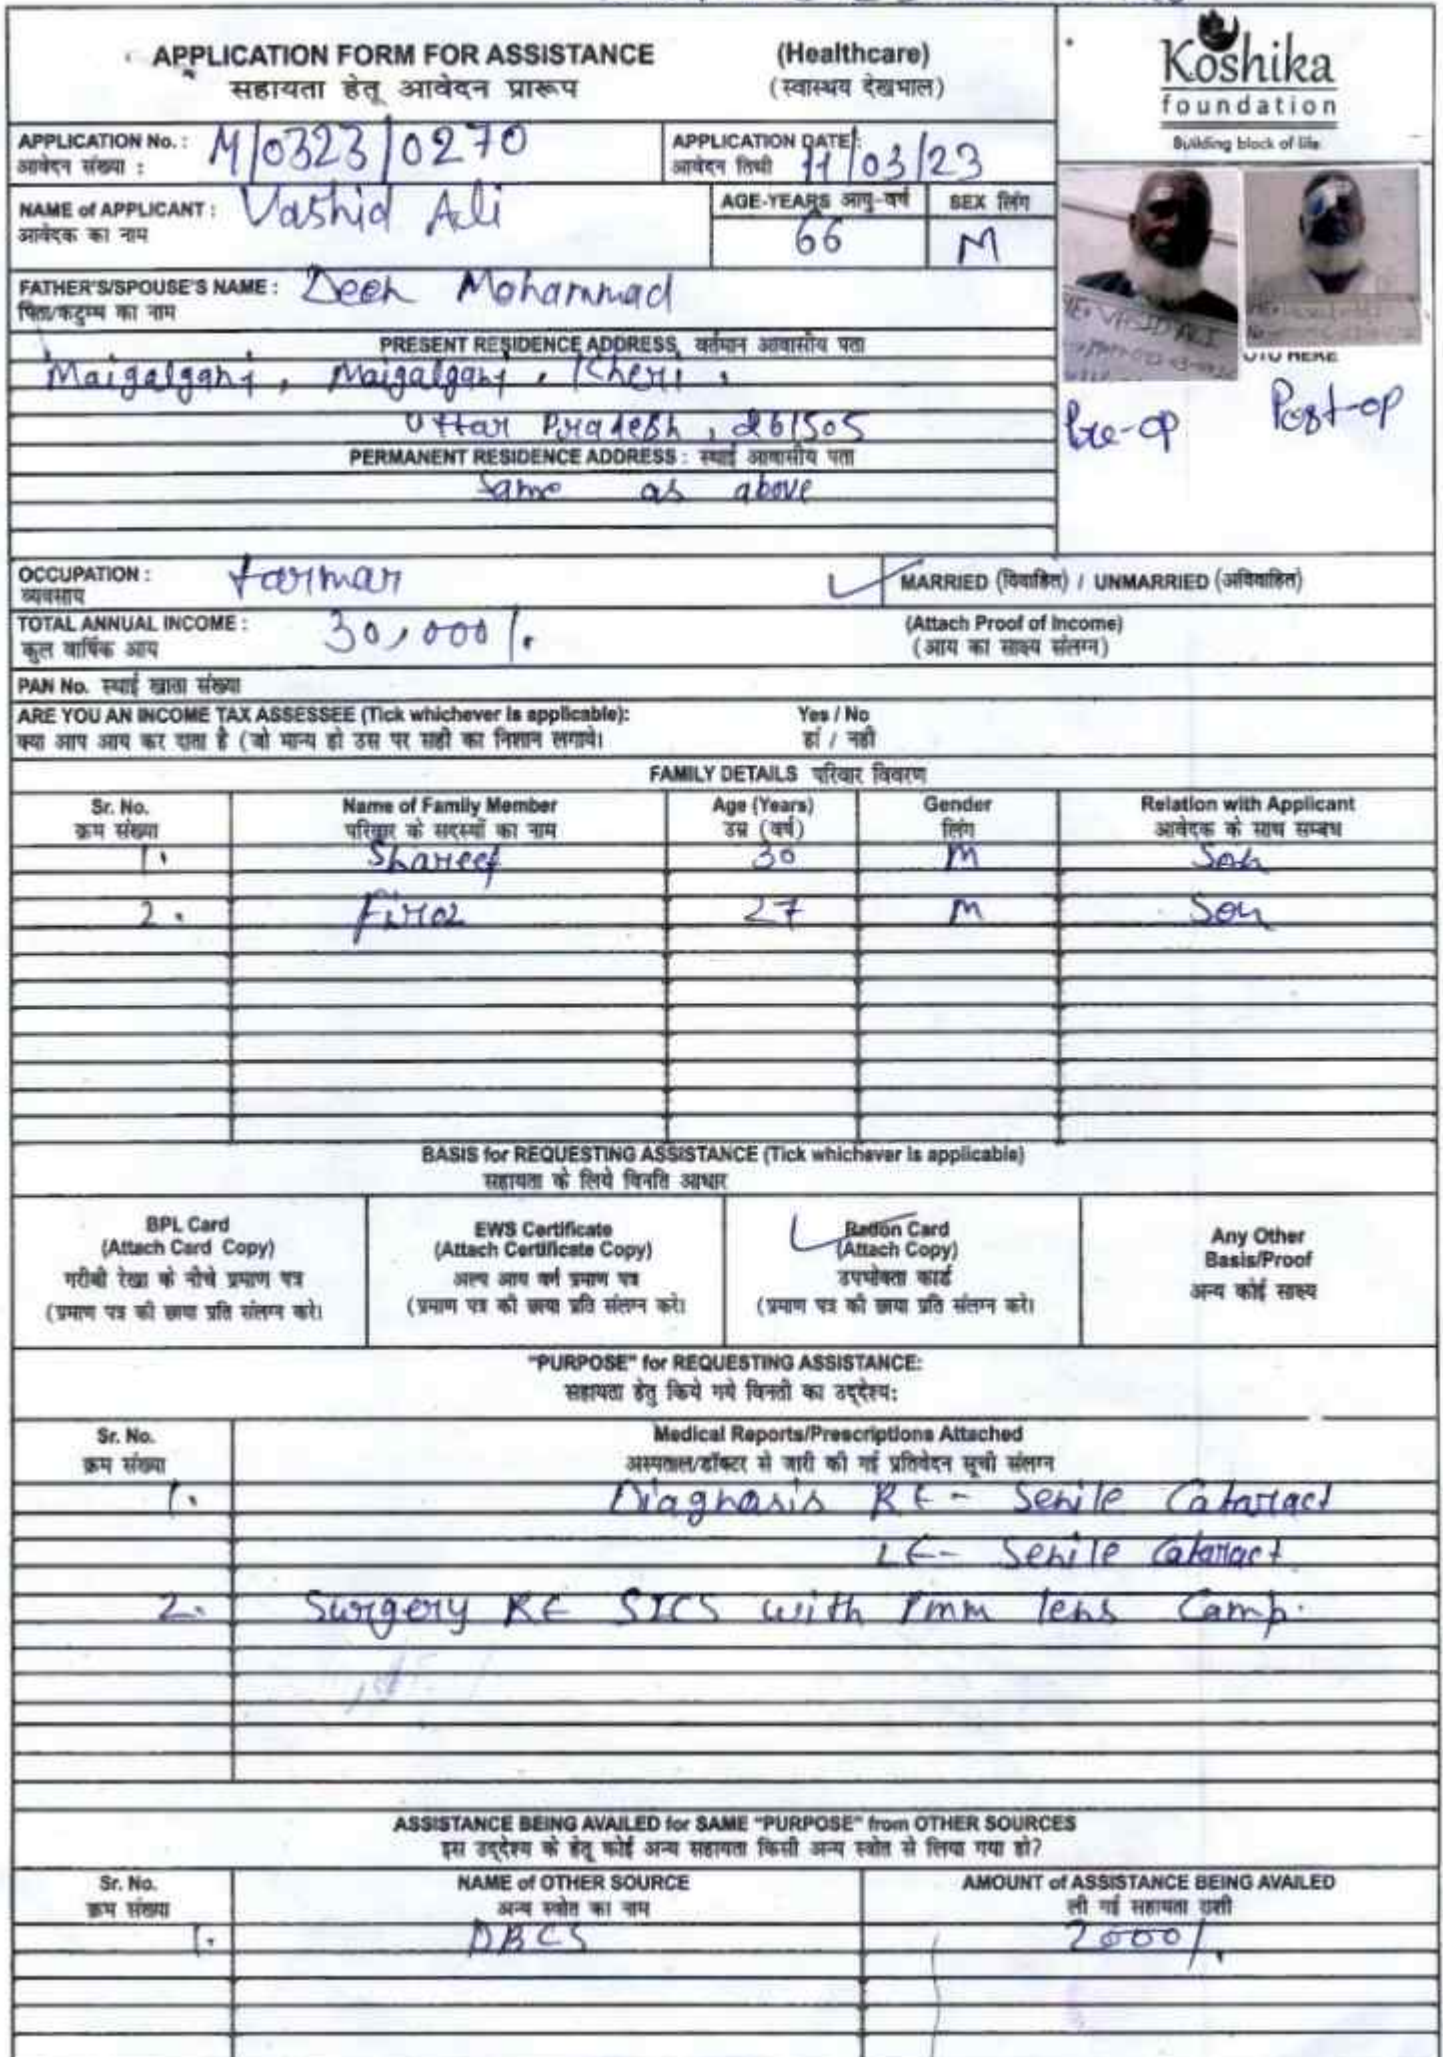 APPLICATION FORM FOR ASSISTANCE (Healthcare)
सहायता हेतू आवेदन प्रारूप (स्वास्थय देखभाल)
Koshika
foundation
Building block of life
APPLICATION No. : M/0323/0270 APPLICATION DATE : 11/03/23
आवेदन संख्या : आवेदन तिथी
NAME of APPLICANT : Vashid Ali AGE-YEARS आयु-वर्ष 66 SEX लिंग M
आवेदक का नाम
FATHER'S/SPOUSE'S NAME : Deen Mohammad
पिता/कटुम्ब का नाम
PRESENT RESIDENCE ADDRESS वर्तमान आवासीय पता
Maigalganj, Maigalganj, Kheri,
Uttar Pradesh, 261505
PERMANENT RESIDENCE ADDRESS : स्थाई आवासीय पता
Same as above
VASID ALI
OTO HERE
Pre-op Post-op
OCCUPATION : farmar MARRIED (विवाहित) / UNMARRIED (अविवाहित)
व्यवसाय
TOTAL ANNUAL INCOME : 30,000/. (Attach Proof of Income)
कुल वार्षिक आय (आय का साक्ष्य संलग्न)
PAN No. स्थाई खाता संख्या
ARE YOU AN INCOME TAX ASSESSEE (Tick whichever is applicable): Yes / No
क्या आप आय कर दाता है (जो मान्य हो उस पर सही का निशान लगाये। हां / नही
FAMILY DETAILS परिवार विवरण
Sr. No. Name of Family Member Age (Years) Gender Relation with Applicant
क्रम संख्या परिवार के सदस्यों का नाम उम्र (वर्ष) लिंग आवेदक के साथ सम्बध
1. Shareef 30 M Son
2. Firoz 27 M Son
BASIS for REQUESTING ASSISTANCE (Tick whichever is applicable)
सहायता के लिये विनति आधार
BPL Card
(Attach Card Copy)
गरीबी रेखा के नीचे प्रमाण पत्र
(प्रमाण पत्र की छाया प्रति संलग्न करे।
EWS Certificate
(Attach Certificate Copy)
अल्प आय वर्ग प्रमाण पत्र
(प्रमाण पत्र की छाया प्रति संलग्न करे।
Ration Card
(Attach Copy)
उपभोक्ता कार्ड
(प्रमाण पत्र की छाया प्रति संलग्न करे।
Any Other
Basis/Proof
अन्य कोई साक्ष्य
"PURPOSE" for REQUESTING ASSISTANCE:
सहायता हेतु किये गये विनती का उद्देश्य:
Sr. No. Medical Reports/Prescriptions Attached
क्रम संख्या अस्पताल/डॉक्टर से जारी की गई प्रतिवेदन सूची संलग्न
1. Diagnosis RE - Senile Cataract
LE - Senile Cataract
2. Surgery RE SICS with Pmm lens Camp.
ASSISTANCE BEING AVAILED for SAME "PURPOSE" from OTHER SOURCES
इस उद्देश्य के हेतू कोई अन्य सहायता किसी अन्य स्त्रोत से लिया गया हो?
Sr. No. NAME of OTHER SOURCE AMOUNT of ASSISTANCE BEING AVAILED
क्रम संख्या अन्य स्त्रोत का नाम ली गई सहायता राशी
1. DBCS 2000/.